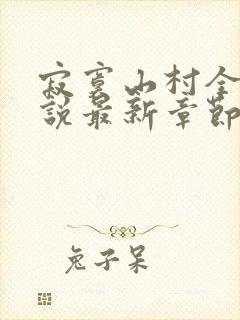 寂寞山村全
說最新章節
兔子呆